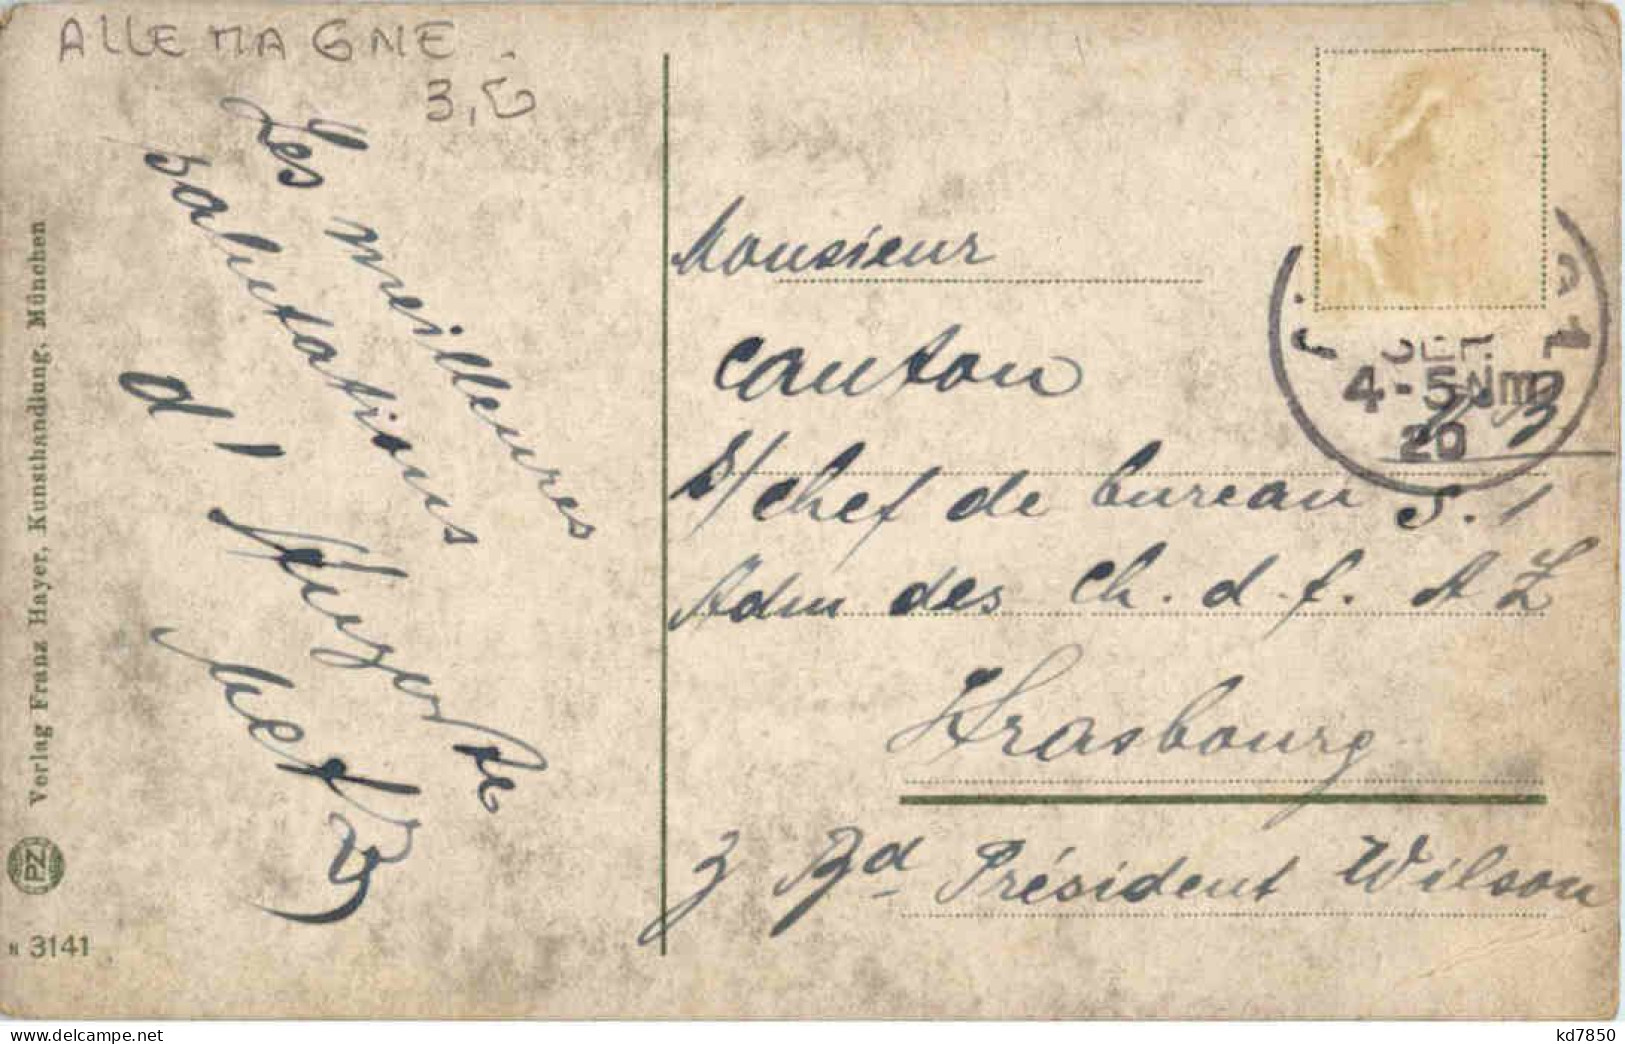 ALLEMAGNE
3,
Les meilleures
salutations
d'
Monsieur
Canton
S/chef de bureau S. 1
Adm des Ch. d. f. A L
Strasbourg
3 Bd Président Wilson
SEP.
4-5Nm
20
Verlag Franz Hayer, Kunsthandlung, München
PZ
N 3141
kd7850